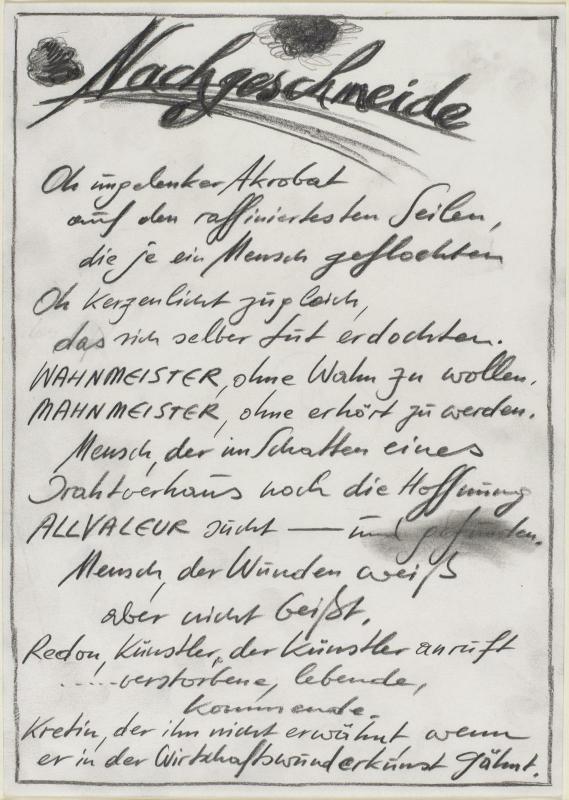 Nachgeschmeide
Oh ungelenker Akrobat
auf den raffiniertesten Seilen,
die je ein Mensch geflochten
Oh Kerzenlicht zugleich,
das sich selber tut erdochten.
WAHNMEISTER, ohne Wahn zu wollen.
MAHNMEISTER, ohne erhört zu werden.
Mensch, der im Schatten eines
Drahtverhaus noch die Hoffnung
ALLVALEUR sucht — und gefunden.
Mensch, der Wunden weiß
aber nicht beißt.
Redon, Künstler, der Künstler anruft
.....verstorbene, lebende,
kommende.
Kretin, der ihn nicht erwähnt wenn
er in der Wirtschaftswunderkunst gähnt.